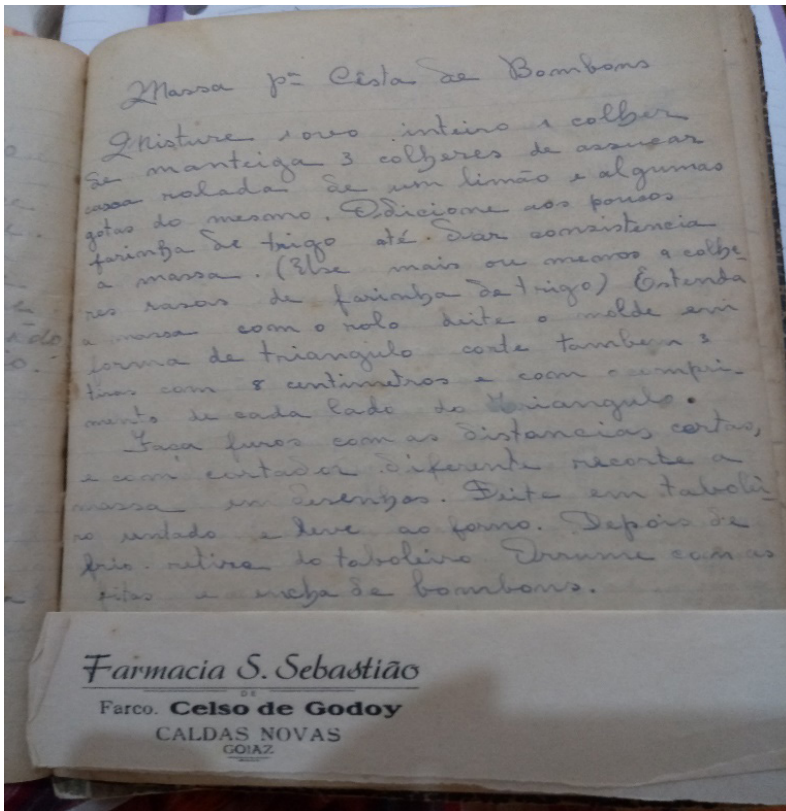 Massa pª Cêsta de Bombons
Misture 1 ovo inteiro 1 colher
de manteiga 3 colheres de assucar
casca rolada de um limão e algumas
gotas do mesmo. Adicione aos poucos
farinha de trigo até dar consistencia
a massa. (Use mais ou menos 9 colhe
res rasas de farinha de trigo) Estenda
a massa com o rolo deite o molde em
forma de triangulo corte tambem 3
tiras com 8 centimetros e com o compri-
mento de cada lado do triangulo.
Faça furos com as distancias certas,
e com cortador diferente recorte a
massa em desenhos. Deite em tabolei
ro untado e leve ao forno. Depois de
frio retire do taboleiro Arrume com as
fitas e encha de bombons.
Farmacia S. Sebastião
DE
Farco. Celso de Godoy
CALDAS NOVAS
GOIAZ